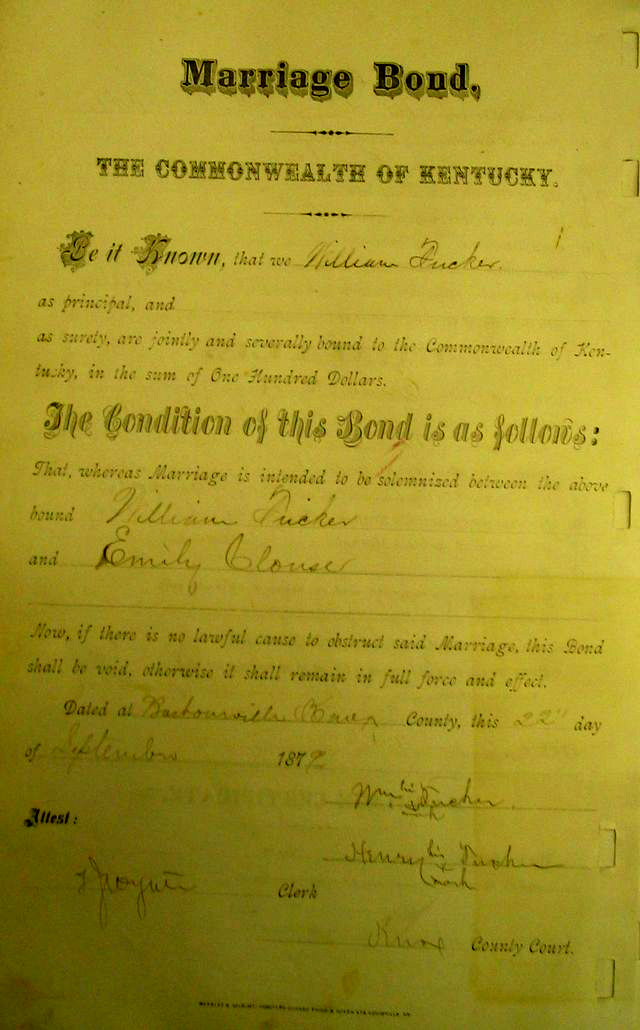 Marriage Bond.
THE COMMONWEALTH OF KENTUCKY.
Be it Known, that we William Tucker.
as principal, and
as surety, are jointly and severally bound to the Commonwealth of Ken-
tucky, in the sum of One Hundred Dollars.
The Condition of this Bond is as follows:
That, whereas Marriage is intended to be solemnized between the above
bound William Tucker
and Emily Clouse
Now, if there is no lawful cause to obstruct said Marriage, this Bond
shall be void, otherwise it shall remain in full force and effect.
Dated at Knox County, this 22" day
of 1879
Wm his Tucker.
mark
Attest:
Henry his Tucker
mark
Clerk
Knox County Court.